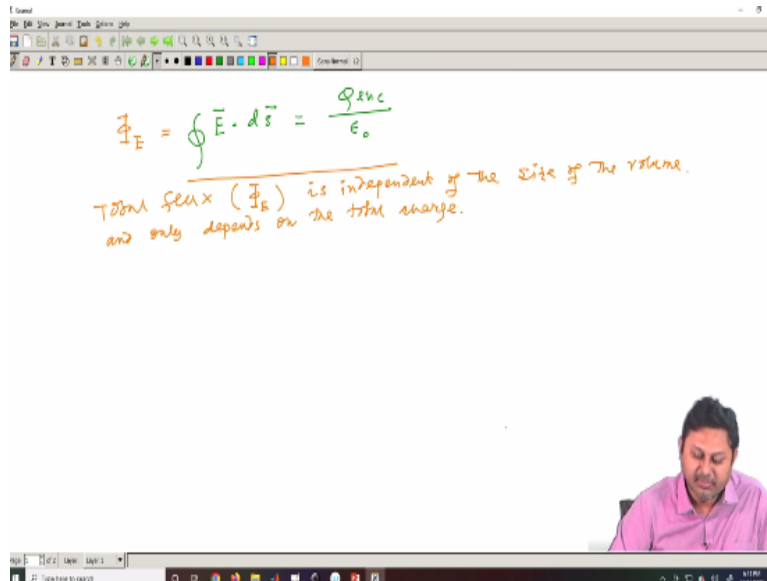 File Edit View Journal Tools Options Help
Sans Normal 12
Φ_E = ∮ E⃗ · ds⃗ = Qenc / ε₀
Total flux (Φ_E) is independent of the size of the volume.
and only depends on the total charge.
Page 1 of 2 Layer: Layer 1
Type here to search